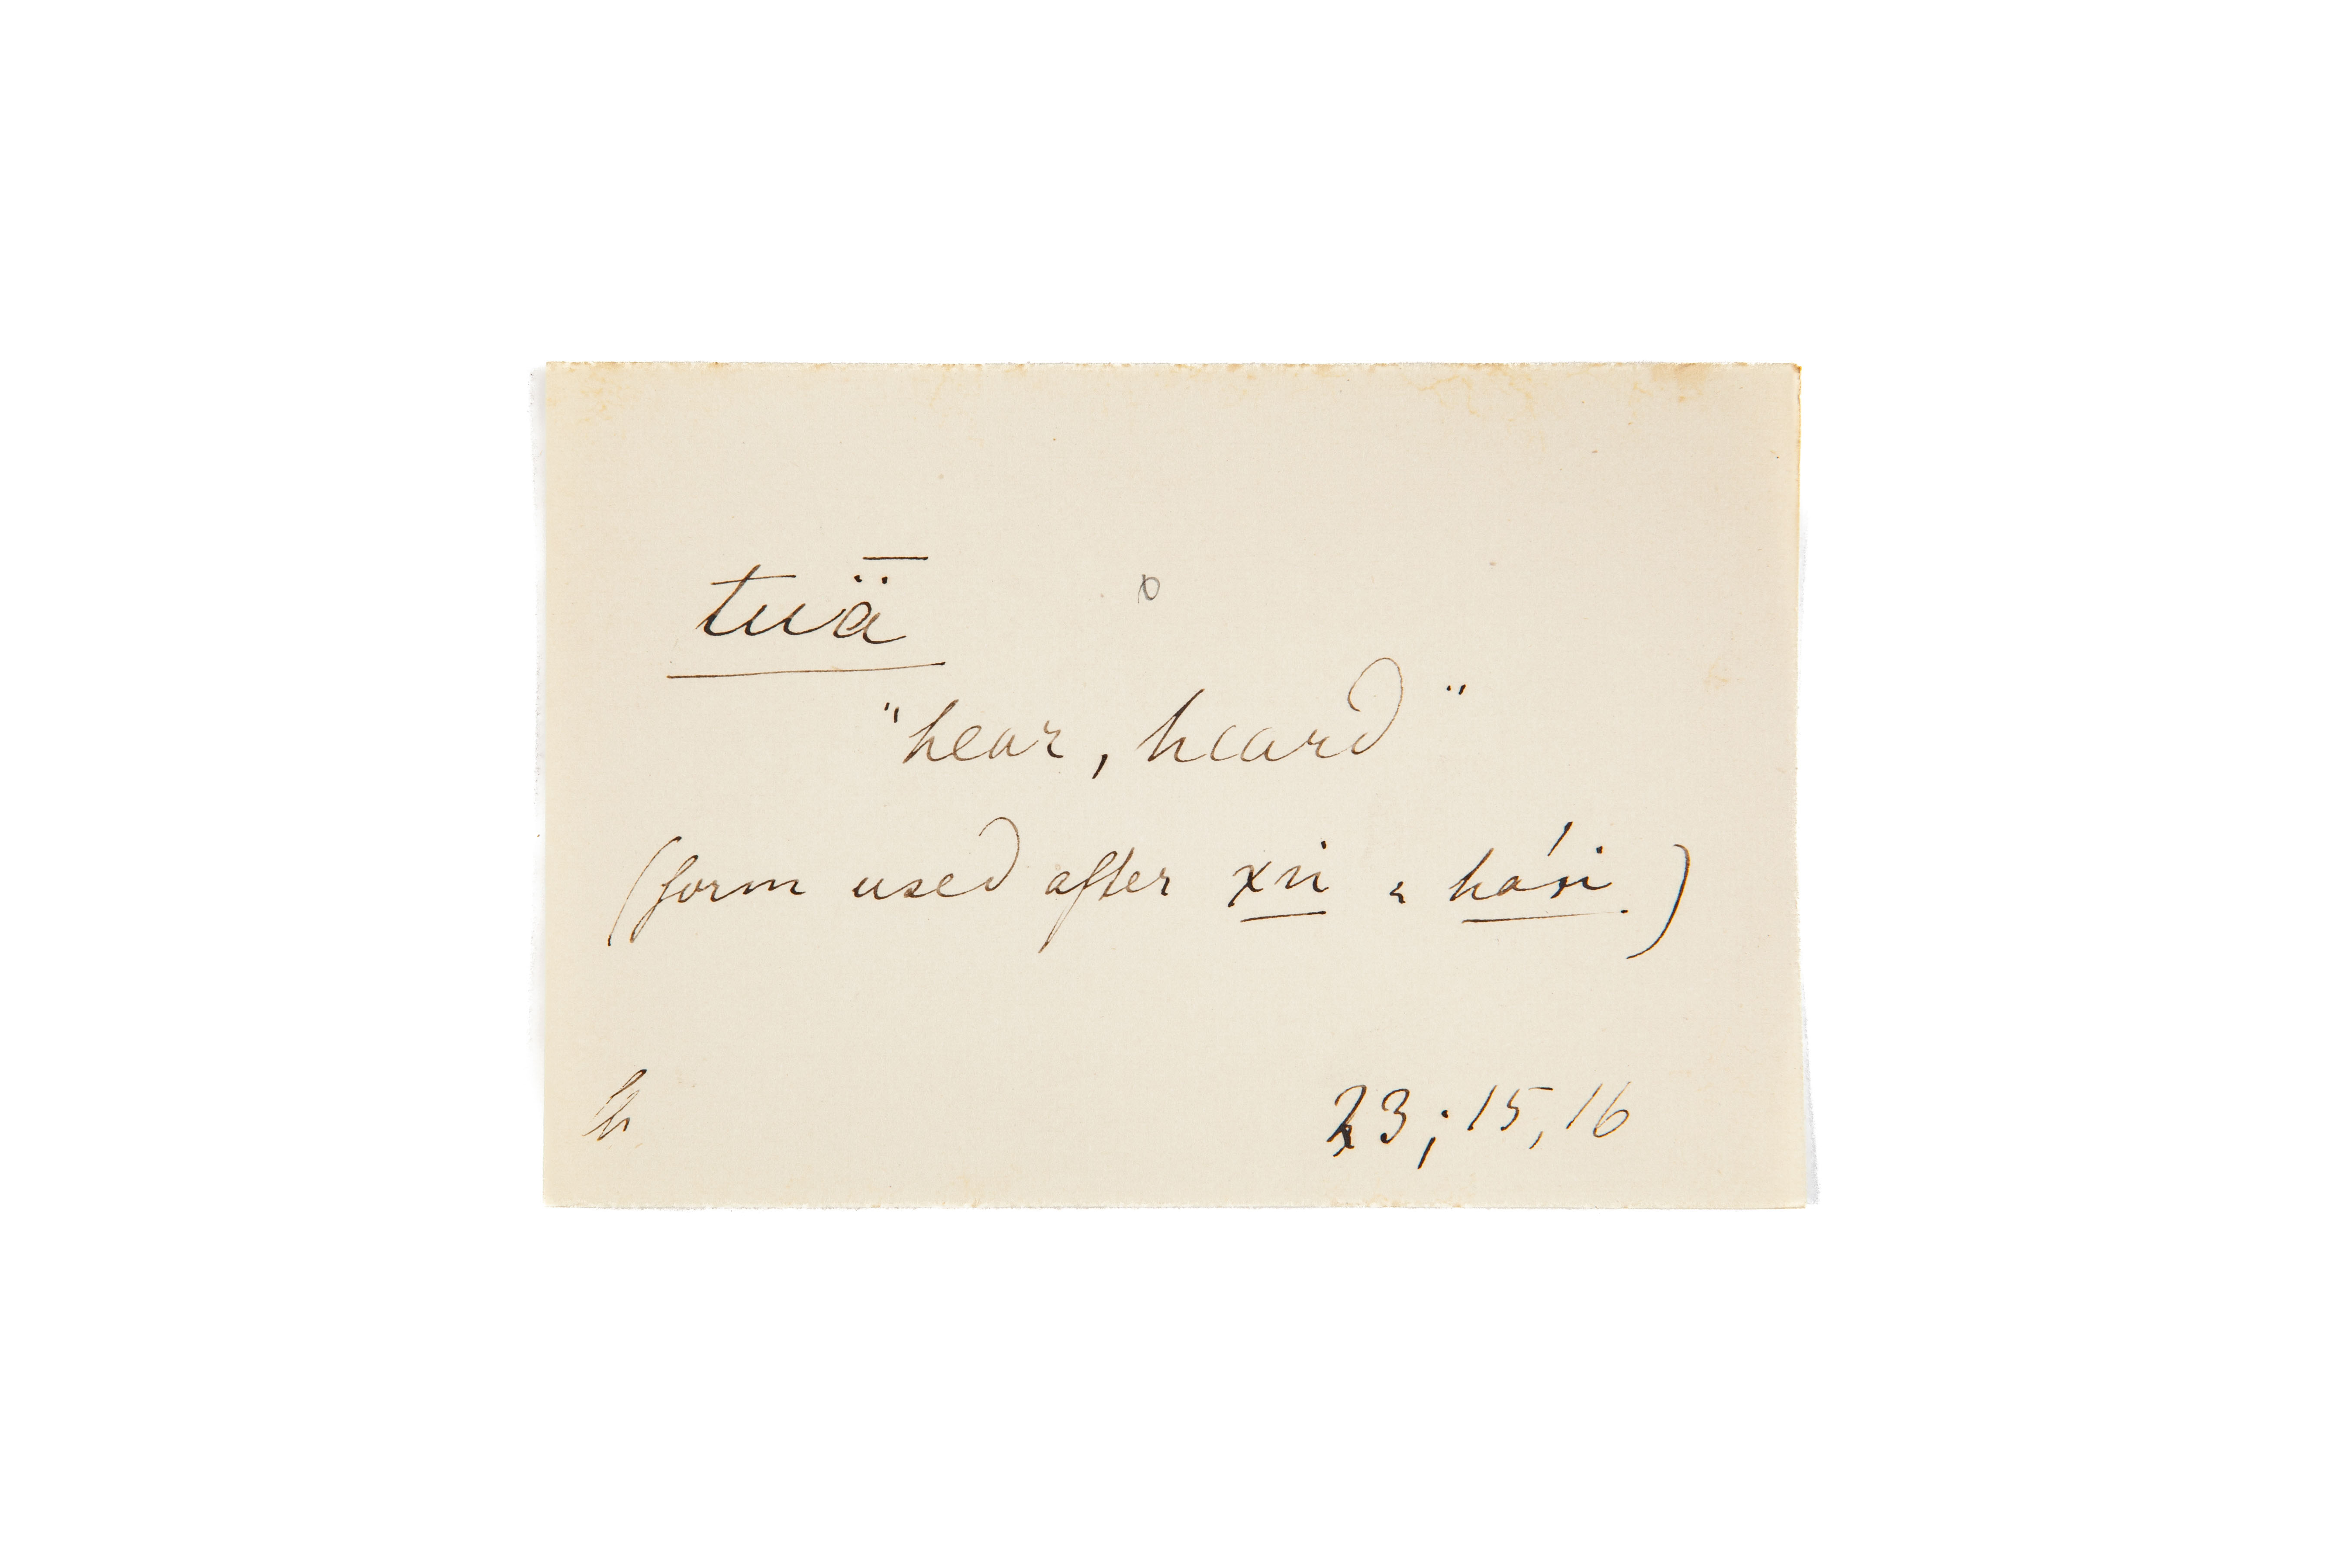 tuǟ
"hear, heard"
(form used after xu & hási.)
h
23; 15, 16